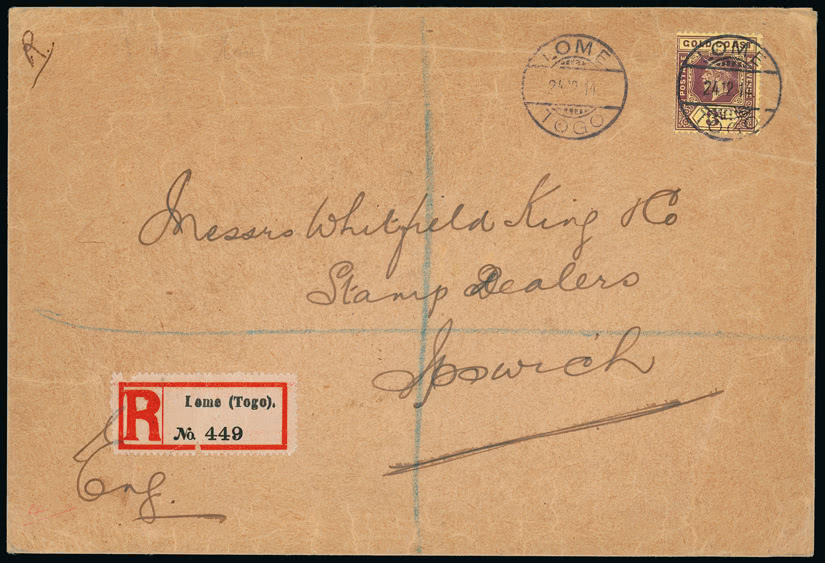 R.
LOME
24.12.14.
TOGO
GOLD COAST
POSTAGE
LOME
24.12.14
TOGO
Messrs Whitfield King & Co
Stamp Dealers
Ipswich
R
Lome (Togo).
No. 449
Eng.